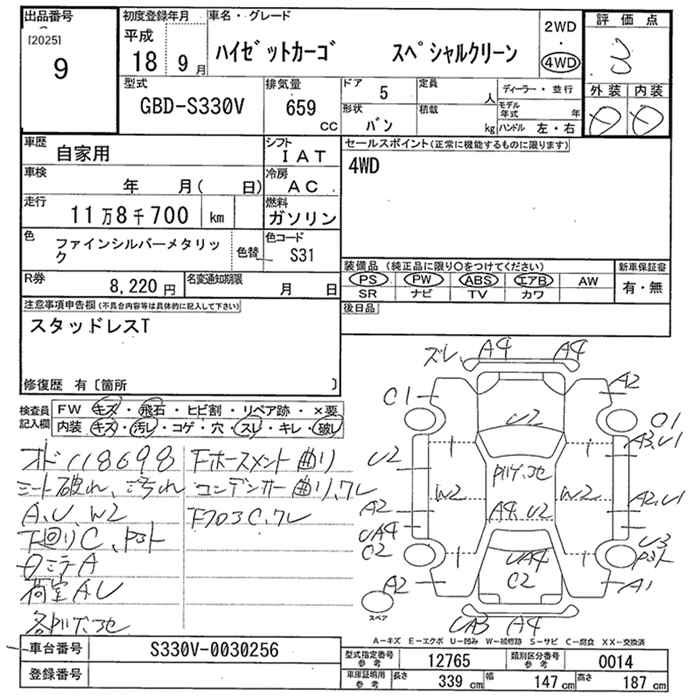 出品番号
[2025]
9
初度登録年月
平成
18 9 月
車名・グレード
ハイゼットカーゴ スペシャルクリーン
2WD
・
4WD
評価点
3
外装 内装
D D
型式
GBD-S330V
排気量
659
cc
ドア
5
定員
人
ディーラー・並行
モデル年式 年
形状
バン
積載
kg
ハンドル 左・右
車歴
自家用
シフト
IAT
車検
年 月( 日)
冷房
AC
走行
11万8千700 km
燃料
ガソリン
色
ファインシルバーメタリック
色替
色コード
S31
R券
8,220 円
名変通知期限
月 日
セールスポイント(正常に機能するものに限ります)
4WD
装備品 (純正品に限り○をつけてください)
PS PW ABS エアB AW
SR ナビ TV カワ
新車保証書
有・無
後日品
注意事項申告欄(不具合内容等は具体的に記入して下さい)
スタッドレスT
修復歴 有〔箇所 〕
検査員記入欄
FW キズ・飛石・ヒビ割・リペア跡・×要
内装 キズ・汚レ・コゲ・穴・スレ・キレ・破レ
オド118698
シート破れ、汚れ
A、U、W2
下回りC、
内ミラA
荷室AU
下ホースメント曲り
コンデンサー曲り、ワレ
下フロ3C、ワレ
ズレ A4 A4
C1 A2
U2
O1
A3,U1
U2
W2 W2
A2,U1
A2
A4,U2
UA4
C2
U3
UA4
C2
A2
A1
スペア
UA3 A4
A－キズ E－エクボ U－凹み W－補修跡 S－サビ C－腐食 XX－交換済
車台番号
S330V-0030256
登録番号
型式指定番号 参考 12765 類別区分番号 参考 0014
車庫証明用 参考 長さ 339 cm 幅 147 cm 高さ 187 cm